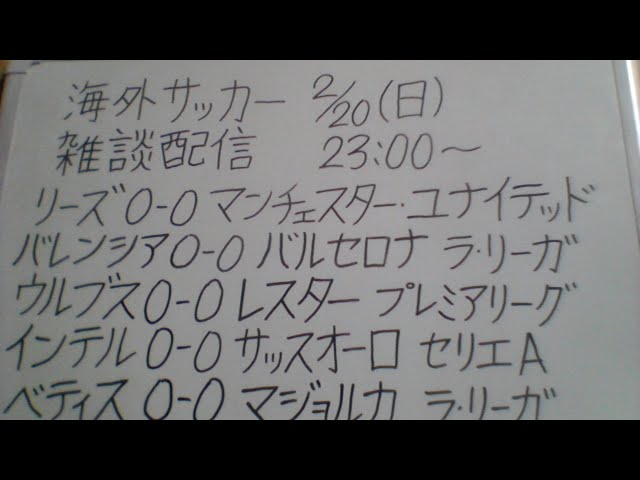 海外サッカー 2/20(日)
雑談配信 23:00〜
リーズ0-0マンチェスター·ユナイテッド
バレンシア0-0バルセロナ ラ·リーガ
ウルブス0-0レスター プレミアリーグ
インテル0-0サッスオーロ セリエA
ベティス0-0マジョルカ ラ·リーガ